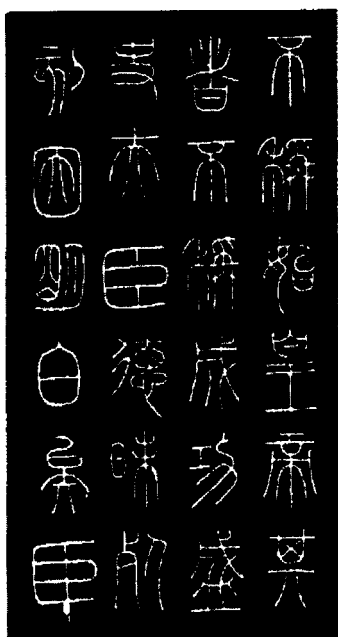 不稱始皇帝其
者不稱成功盛
史夫臣德昧死
刻因明白矣臣